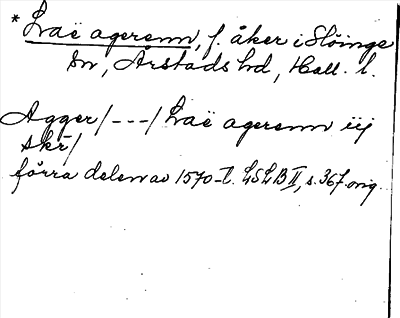 * Hvaë agerenn, f. åker i Slöinge
sn, Årstads hd, Hall. l.
Agger/---/Hvaë agerenn iij
skr/
förra delen av 1570-t. LSLB II, s. 367. orig.